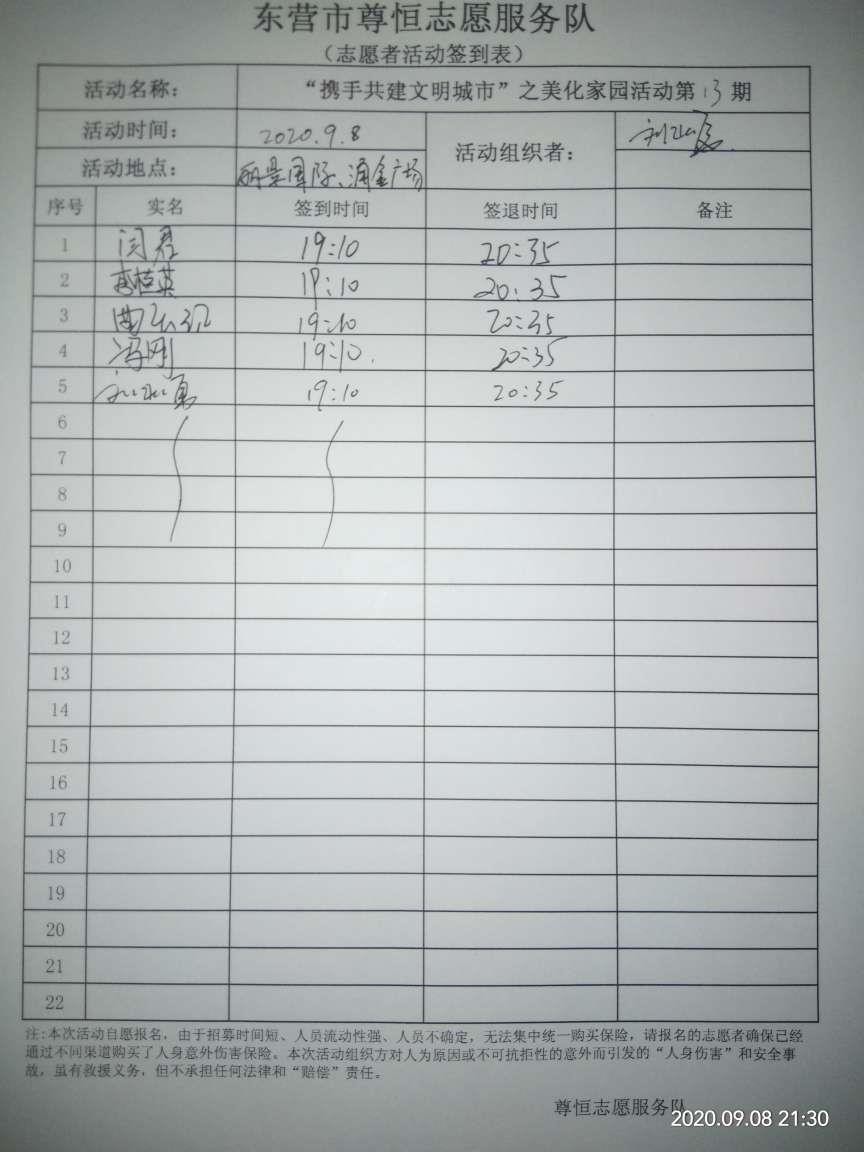 东营市尊恒志愿服务队
（志愿者活动签到表）
活动名称： “携手共建文明城市”之美化家园活动第13期
活动时间： 2020.9.8 活动组织者：
活动地点： 丽景国际、涌金广场
序号 实名 签到时间 签退时间 备注
1 闫君 19:10 20:35
2 19:10 20:35
3 19:10 20:35
4 冯刚 19:10. 20:35
5 19:10 20:35
6
7
8
9
10
11
12
13
14
15
16
17
18
19
20
21
22
注:本次活动自愿报名，由于招募时间短、人员流动性强、人员不确定，无法集中统一购买保险，请报名的志愿者确保已经
通过不同渠道购买了人身意外伤害保险。本次活动组织方对人为原因或不可抗拒性的意外而引发的“人身伤害”和安全事
故，虽有救援义务，但不承担任何法律和“赔偿”责任。
尊恒志愿服务队
2020.09.08 21:30